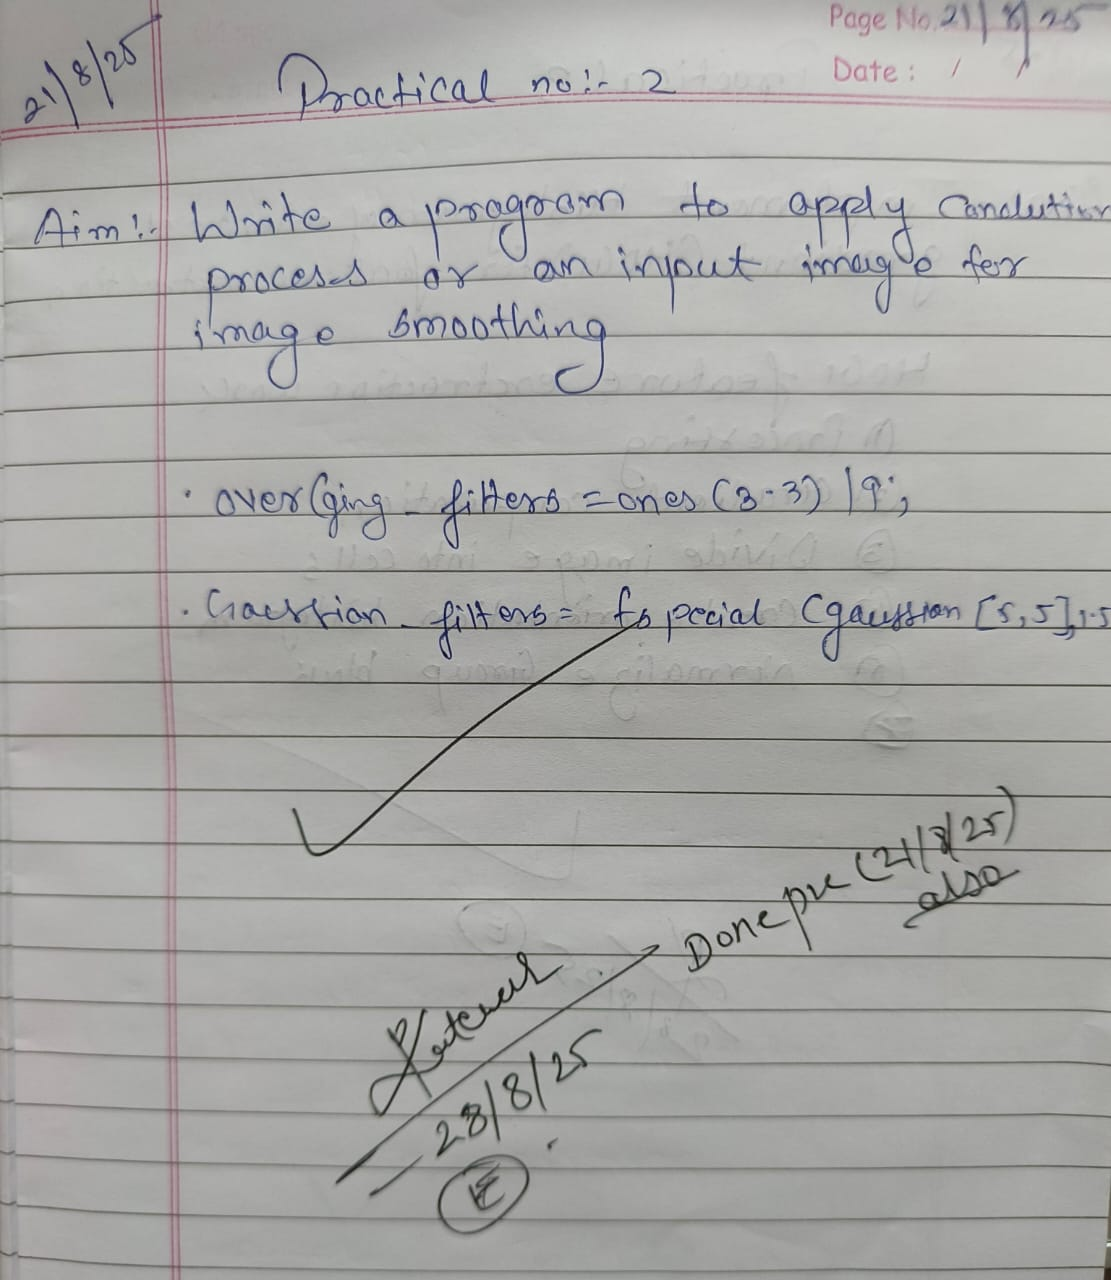 Page No. 21/8/25
21/8/25
Date: / /
Practical no:- 2
Aim:- Write a program to apply Conclution
process or an input image for
image smoothing
. over(ging - filters = ones (3.3) / 9;
. Gaussian - filters = fspecial (gaussian [5,5],1.5
Done pre (21/8/25)
also
28/8/25
E